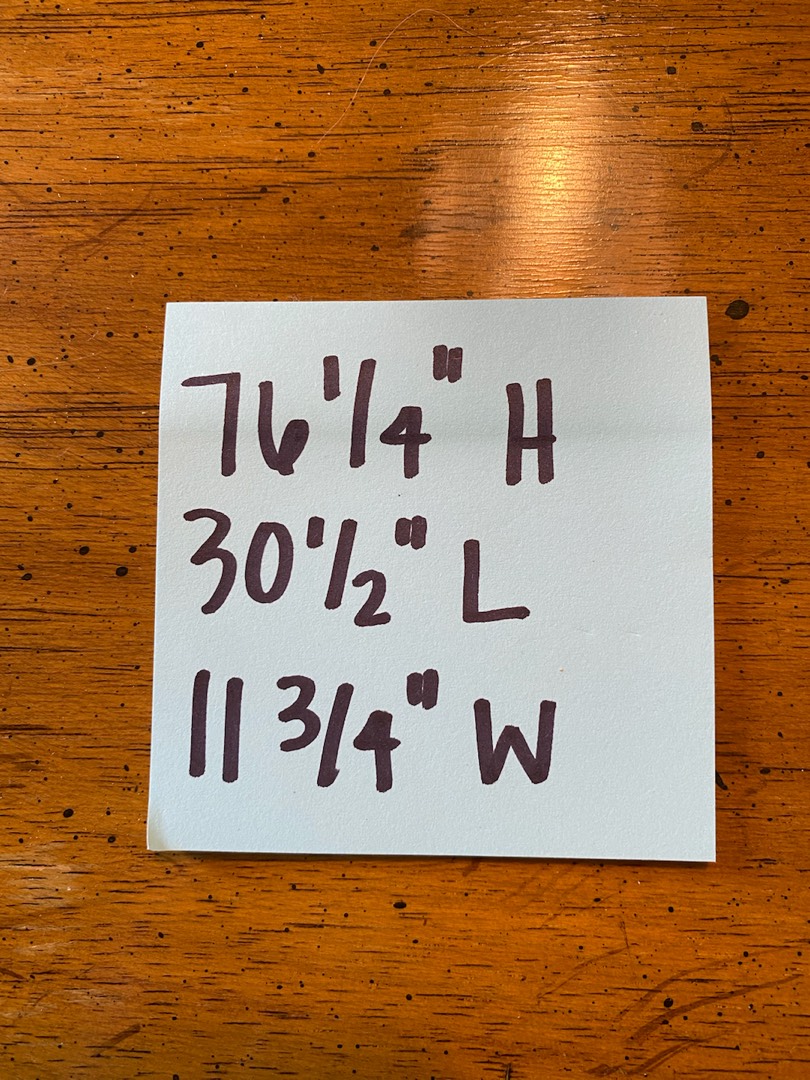 76 1/4" H
30 1/2" L
11 3/4" W